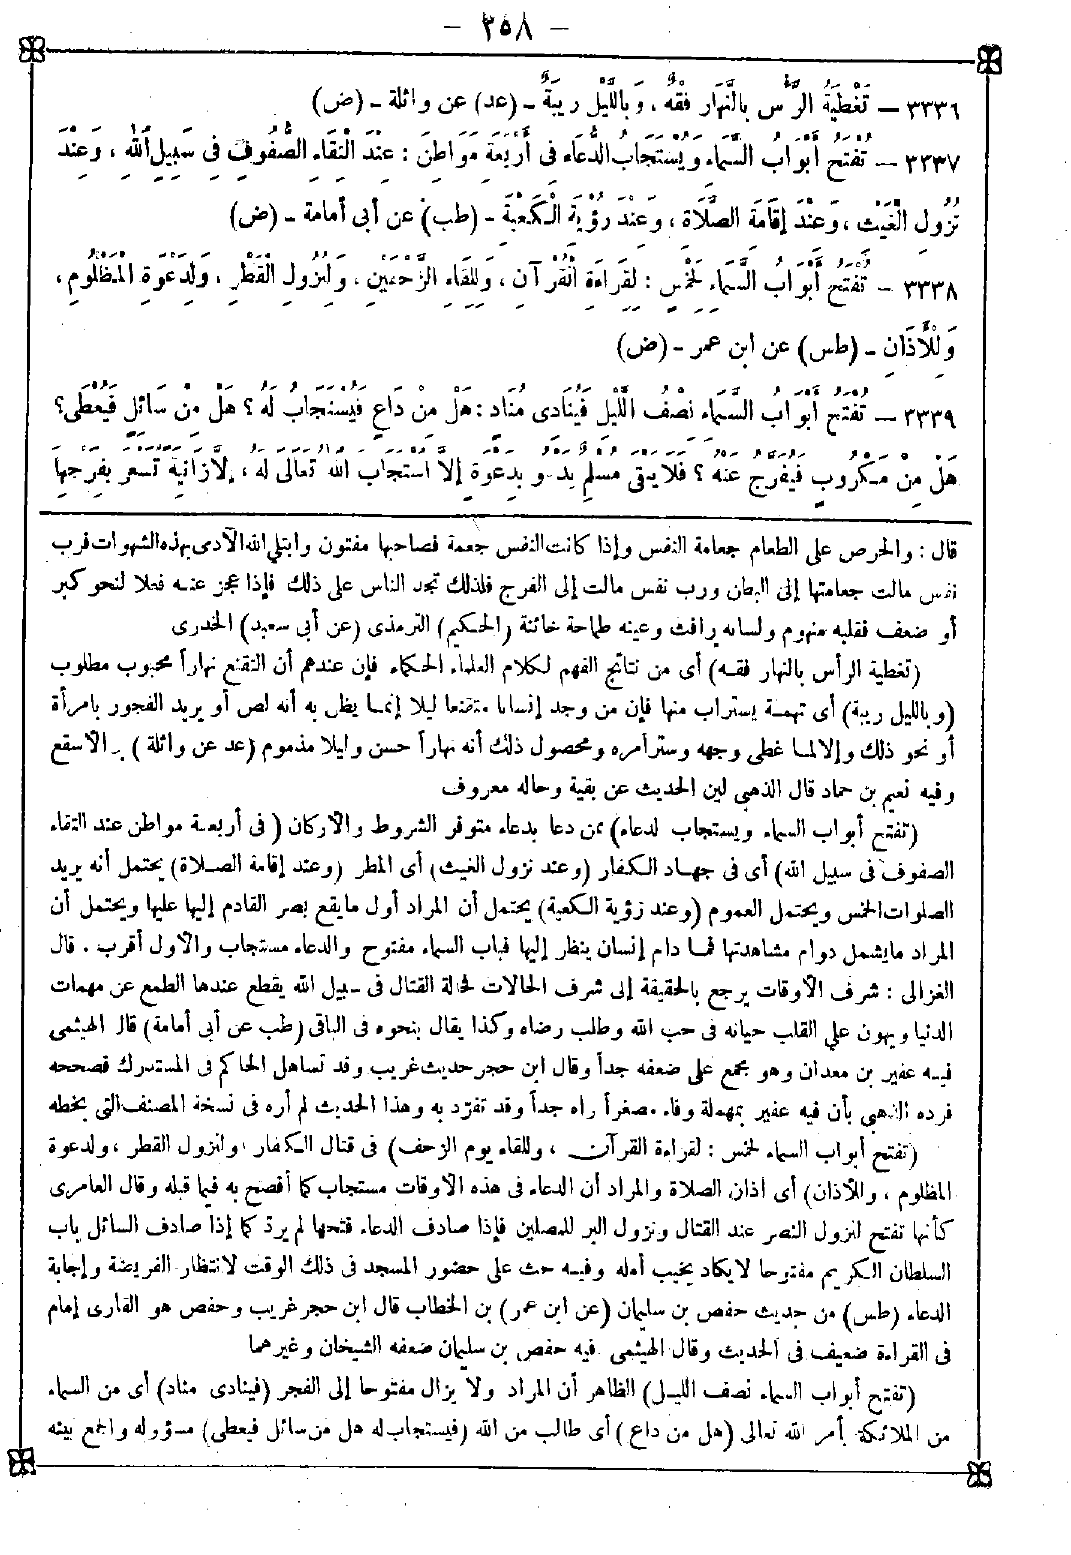 — ٢٥٨ —
٣٣٣٦ — تَغْطِيَةُ الرَّأْسِ بِالنَّهَارِ فِقْهٌ ، وَبِاللَّيْلِ رِيبَةٌ - (عد) عن واثلة - (ض)
٣٣٣٧ — تُفْتَحُ أَبْوَابُ السَّمَاءِ وَيُسْتَجَابُ الدُّعَاءُ فِي أَرْبَعَةِ مَوَاطِنَ : عِنْدَ الْتِقَاءِ الصُّفُوفِ فِي سَبِيلِ اللهِ ، وَعِنْدَ
نُزُولِ الْغَيْثِ ، وَعِنْدَ إِقَامَةِ الصَّلَاةِ ، وَعِنْدَ رُؤْيَةِ الْكَعْبَةِ - (طب) عن أبى أمامة - (ض)
٣٣٣٨ - تُفْتَحُ أَبْوَابُ السَّمَاءِ لِخَمْسٍ : لِقِرَاءَةِ الْقُرْآنِ ، وَلِلِقَاءِ الزَّحْفَيْنِ ، وَلِنُزُولِ الْقَطْرِ ، وَلِدَعْوَةِ الْمَظْلُومِ ،
وَلِلْأَذَانِ - (طس) عن ابن عمر - (ض)
٣٣٣٩ — تُفْتَحُ أَبْوَابُ السَّمَاءِ نِصْفَ اللَّيْلِ فَيُنَادِى مُنَادٍ : هَلْ مِنْ دَاعٍ فَيُسْتَجَابُ لَهُ ؟ هَلْ مِنْ سَائِلٍ فَيُعْطَى ؟
هَلْ مِنْ مَكْرُوبٍ فَيُفَرَّجُ عَنْهُ ؟ فَلَا يَبْقَى مُسْلِمٌ يَدْعُو بِدَعْوَةٍ إِلَّا اسْتَجَابَ اللهُ تَعَالَى لَهُ ، إِلَّا زَانِيَةً تَسْعَى بِفَرْجِهَا
قال : والحرص على الطعام جعامة النفس وإذا كانت النفس جعمة فصاحبها مفتون وابتلى الله الآدمى بهذه الشهوات فرب
نفس مالت جعامتها إلى البطن ورب نفس مالت إلى الفرج فلذلك تجد الناس على ذلك فإذا عجز عنه فعلا لنحو كبر
أو ضعف فقلبه منهوم ولسانه رافث وعينه طماحة خائنة (الحكيم) الترمذى (عن أبى سعيد) الخدرى
(تغطية الرأس بالنهار فقه) أى من نتائج الفهم لكلام العلماء الحكماء فإن عندهم أن التقنع نهاراً محبوب مطلوب
(وبالليل ريبة) أى تهمة يستراب منها فإن من وجد إنسانا متقنعا ليلا إنما يظن به أنه لص أو يريد الفجور بامرأة
أو نحو ذلك وإلا لما غطى وجهه وستر أمره ومحصول ذلك أنه نهاراً حسن وليلا مذموم (عد عن واثلة) بن الأسقع
وفيه نعيم بن حماد قال الذهبى لين الحديث عن بقية وحاله معروف
(تفتح أبواب السماء ويستجاب لدعاء) ممن دعا بدعاء متوفر الشروط والأركان (فى أربعة مواطن عند التقاء
الصفوف فى سبيل الله) أى فى جهاد الكفار (وعند نزول الغيث) أى المطر (وعند إقامة الصلاة) يحتمل أنه يريد
الصلوات الخمس ويحتمل العموم (وعند رؤية الكعبة) يحتمل أن المراد أول ما يقع بصر القادم إليها عليها ويحتمل أن
المراد ما يشمل دوام مشاهدتها فما دام إنسان ينظر إليها فباب السماء مفتوح والدعاء مستجاب والأول أقرب . قال
الغزالى : شرف الأوقات يرجع بالحقيقة إلى شرف الحالات لحالة القتال فى سبيل الله يقطع عندها الطمع عن مهمات
الدنيا ويهون على القلب حياته فى حب الله وطلب رضاه وكذا يقال بنحوه فى الباقى (طب عن أبى أمامة) قال الهيثمى
فيه عفير بن معدان وهو مجمع على ضعفه جداً وقال ابن حجر حديث غريب وقد تساهل الحاكم فى المستدرك فصححه
فرده الذهبى بأن فيه عفير بمهملة وفاء مصغراً واه جداً وقد تفرّد به وهذا الحديث لم أره فى نسخة المصنف التى بخطه
(تفتح أبواب السماء لخمس : لقراءة القرآن ، وللقاء يوم الزحف) فى قتال الكفار (ولنزول القطر ، ولدعوة
المظلوم ، وللأذان) أى اذان الصلاة والمراد أن الدعاء فى هذه الأوقات مستجاب كما أفصح به فيما قبله وقال العامرى
كأنها تفتح لنزول النصر عند القتال ونزول البر للمصلين فإذا صادف الدعاء فتحها لم يردّ كما إذا صادف السائل باب
السلطان الكريم مفتوحا لا يكاد يخيب أمله وفيه حث على حضور المسجد فى ذلك الوقت لانتظار الفريضة وإجابة
الدعاء (طس) من حديث حفص بن سليمان (عن ابن عمر) بن الخطاب قال ابن حجر غريب وحفص هو القارى إمام
فى القراءة ضعيف فى الحديث وقال الهيثمى فيه حفص بن سليمان ضعفه الشيخان وغيرهما
(تفتح أبواب السماء نصف الليل) الظاهر أن المراد ولا يزال مفتوحا إلى الفجر (فينادى مناد) أى من السماء
من الملائكة بأمر الله تعالى (هل من داع) أى طالب من الله (فيستجاب له هل من سائل فيعطى) مسؤوله والجمع بينه